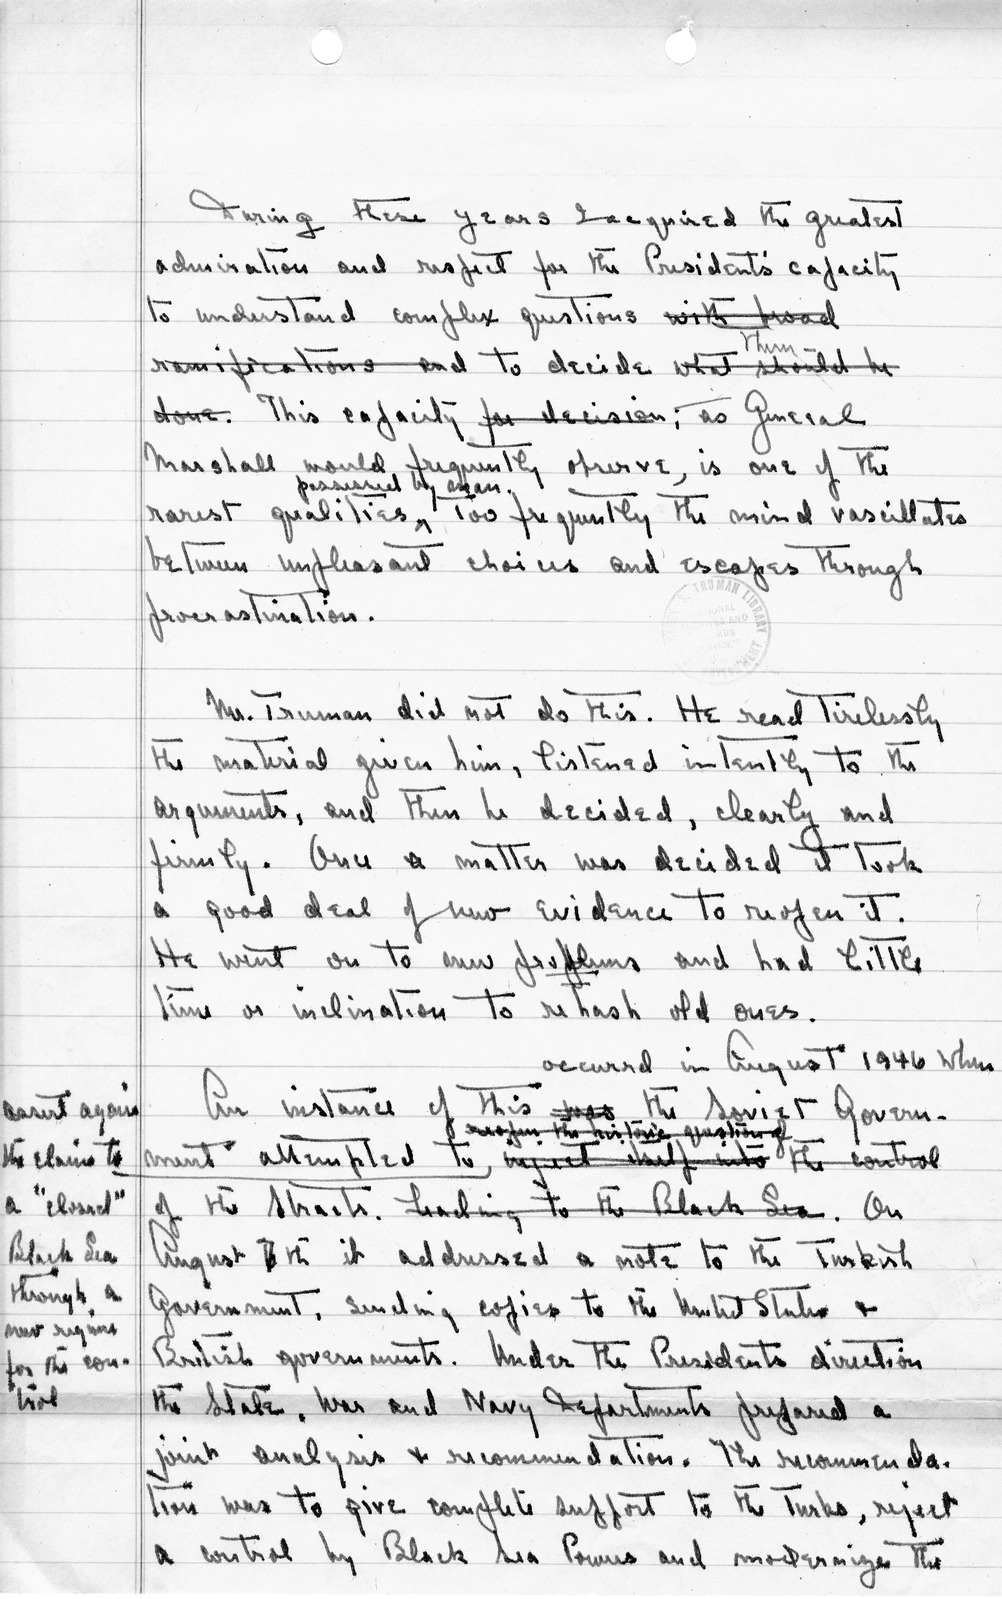 During these years I acquired the greatest
admiration and respect for the President's capacity
to understand complex questions with broad
ramifications and to decide what should be
them
done. This capacity for decision, as General
Marshall would frequently observe, is one of the
possessed by man.
rarest qualities, Too frequently the mind vascillates
between unpleasant choices and escapes through
procrastination.
TRUMAN LIBRARY
Mr. Truman did not do this. He read tirelessly
the material given him, listened intently to the
arguments, and then he decided, clearly and
firmly. Once a matter was decided it took
a good deal of new evidence to reopen it.
He went on to new problems and had little
time or inclination to rehash old ones.
occurred in August 1946 when
An instance of this was the Soviet Govern-
reopen the historic question of
ment attempted to inject itself into the control
assert again
the claim to
a "closed"
Black Sea
through a
new regime
for the con-
trol
of the Straits. leading to the Black Sea. On
August 7th it addressed a note to the Turkish
Government, sending copies to the United States &
British governments. Under the Presidents direction
the State, War and Navy Departments prepared a
joint analysis & recommendation. The recommenda-
tion was to give complete support to the Turks, reject
a control by Black Sea Powers and modernize the